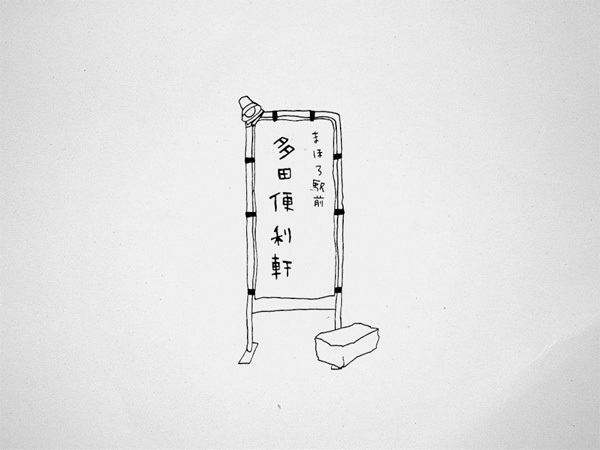 まほろ駅前
多田便利軒